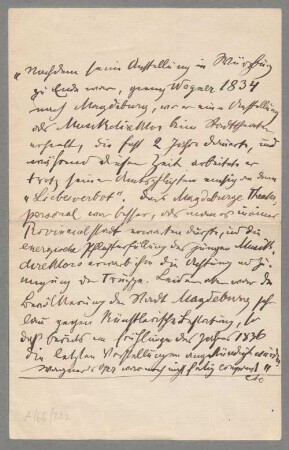 „Nachdem seine Anstellung in Würzburg
zu Ende war, ging Wagner 1834
nach Magdeburg, wo er eine Anstellung
als Musikdirektor beim Stadttheater
erhielt, die fast 2 Jahre dauerte, und
während dieser Zeit arbeitete er
trotz seiner Amtspflichten eifrig an dem
„Liebesverbot". Das Magdeburger Theater
personal war besser, als man es in einer
Provinzialstadt erwarten durfte, und die
energische Pflichterfüllung des jungen Musik
direktors erwarb ihm die Achtung und Zu
neigung der Truppe. Leider aber war die
Bevölkerung der Stadt Magdeburg sehr
lau gegen künstlerische Bestrebung, so
daß bereits im Frühlinge des Jahres 1836
die letzten Vorstellungen angekündigt wurden
Wagners Oper war noch nicht fertig componirt"
A/66/232